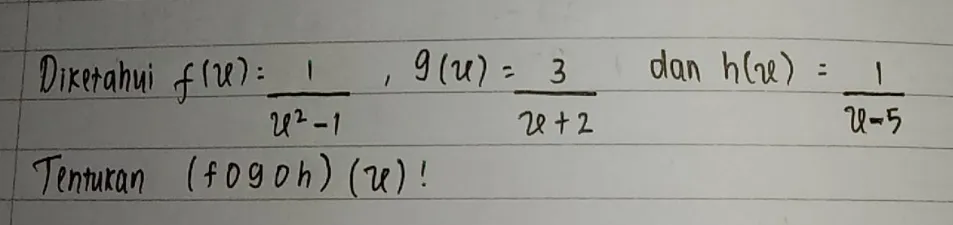 Diketahui f(x) = 1/(x² - 1), g(x) = 3/(x + 2) dan h(x) = 1/(x - 5)
Tentukan (f o g o h)(x)!